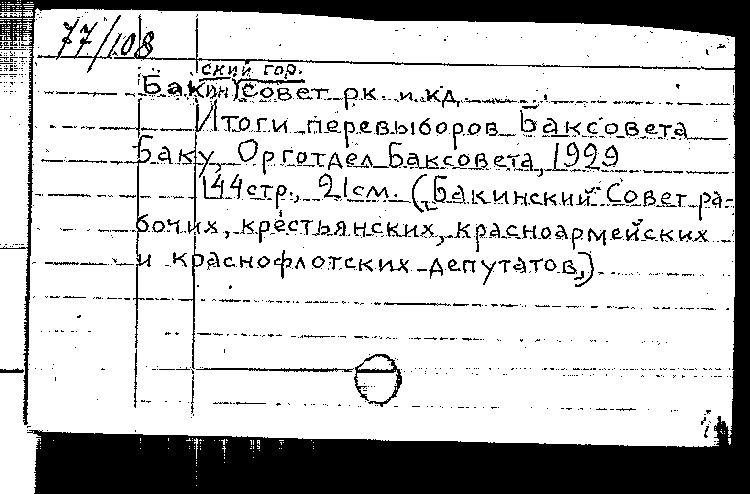 77/108
ский гор.
Бак(ин)совет рк. и кд
Итоги перевыборов Баксовета
Баку, Орготдел Баксовета, 1929
144стр., 21см. (Бакинский Совет ра-
бочих, крестьянских, красноармейских
и краснофлотских депутатов.)